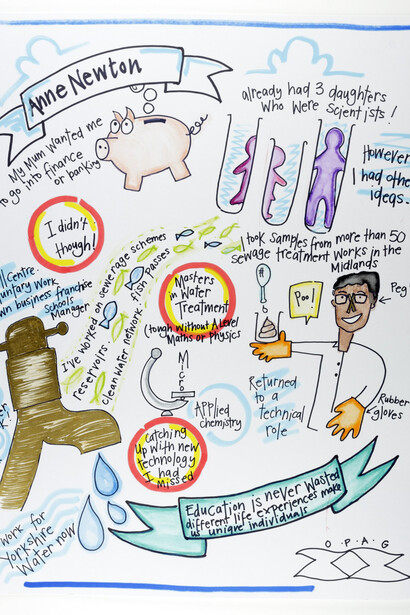 Anne Newton
My Mum wanted me
to go into finance
or banking
already had 3 daughters
who were scientists!
However
I had othe
ideas.
I didn't
though!
ll Centre.
untary Work.
wn business franchise
Schools
Manager
I've worked on sewerage schemes
reservoirs. fish passes
clean water network
Masters
in Water
Treatment
(tough without A level
Maths or Physics
I took samples from more than 50
sewage treatment works in the
Midlands
Poo!
Peg
Rubber
gloves
Micro
Applied
chemistry
Returned
to a
technical
role
Catching
up with new
technology
I had
missed
work for
Yorkshire
Water now
Education is never wasted
different life experiences make
us unique individuals
O P A G